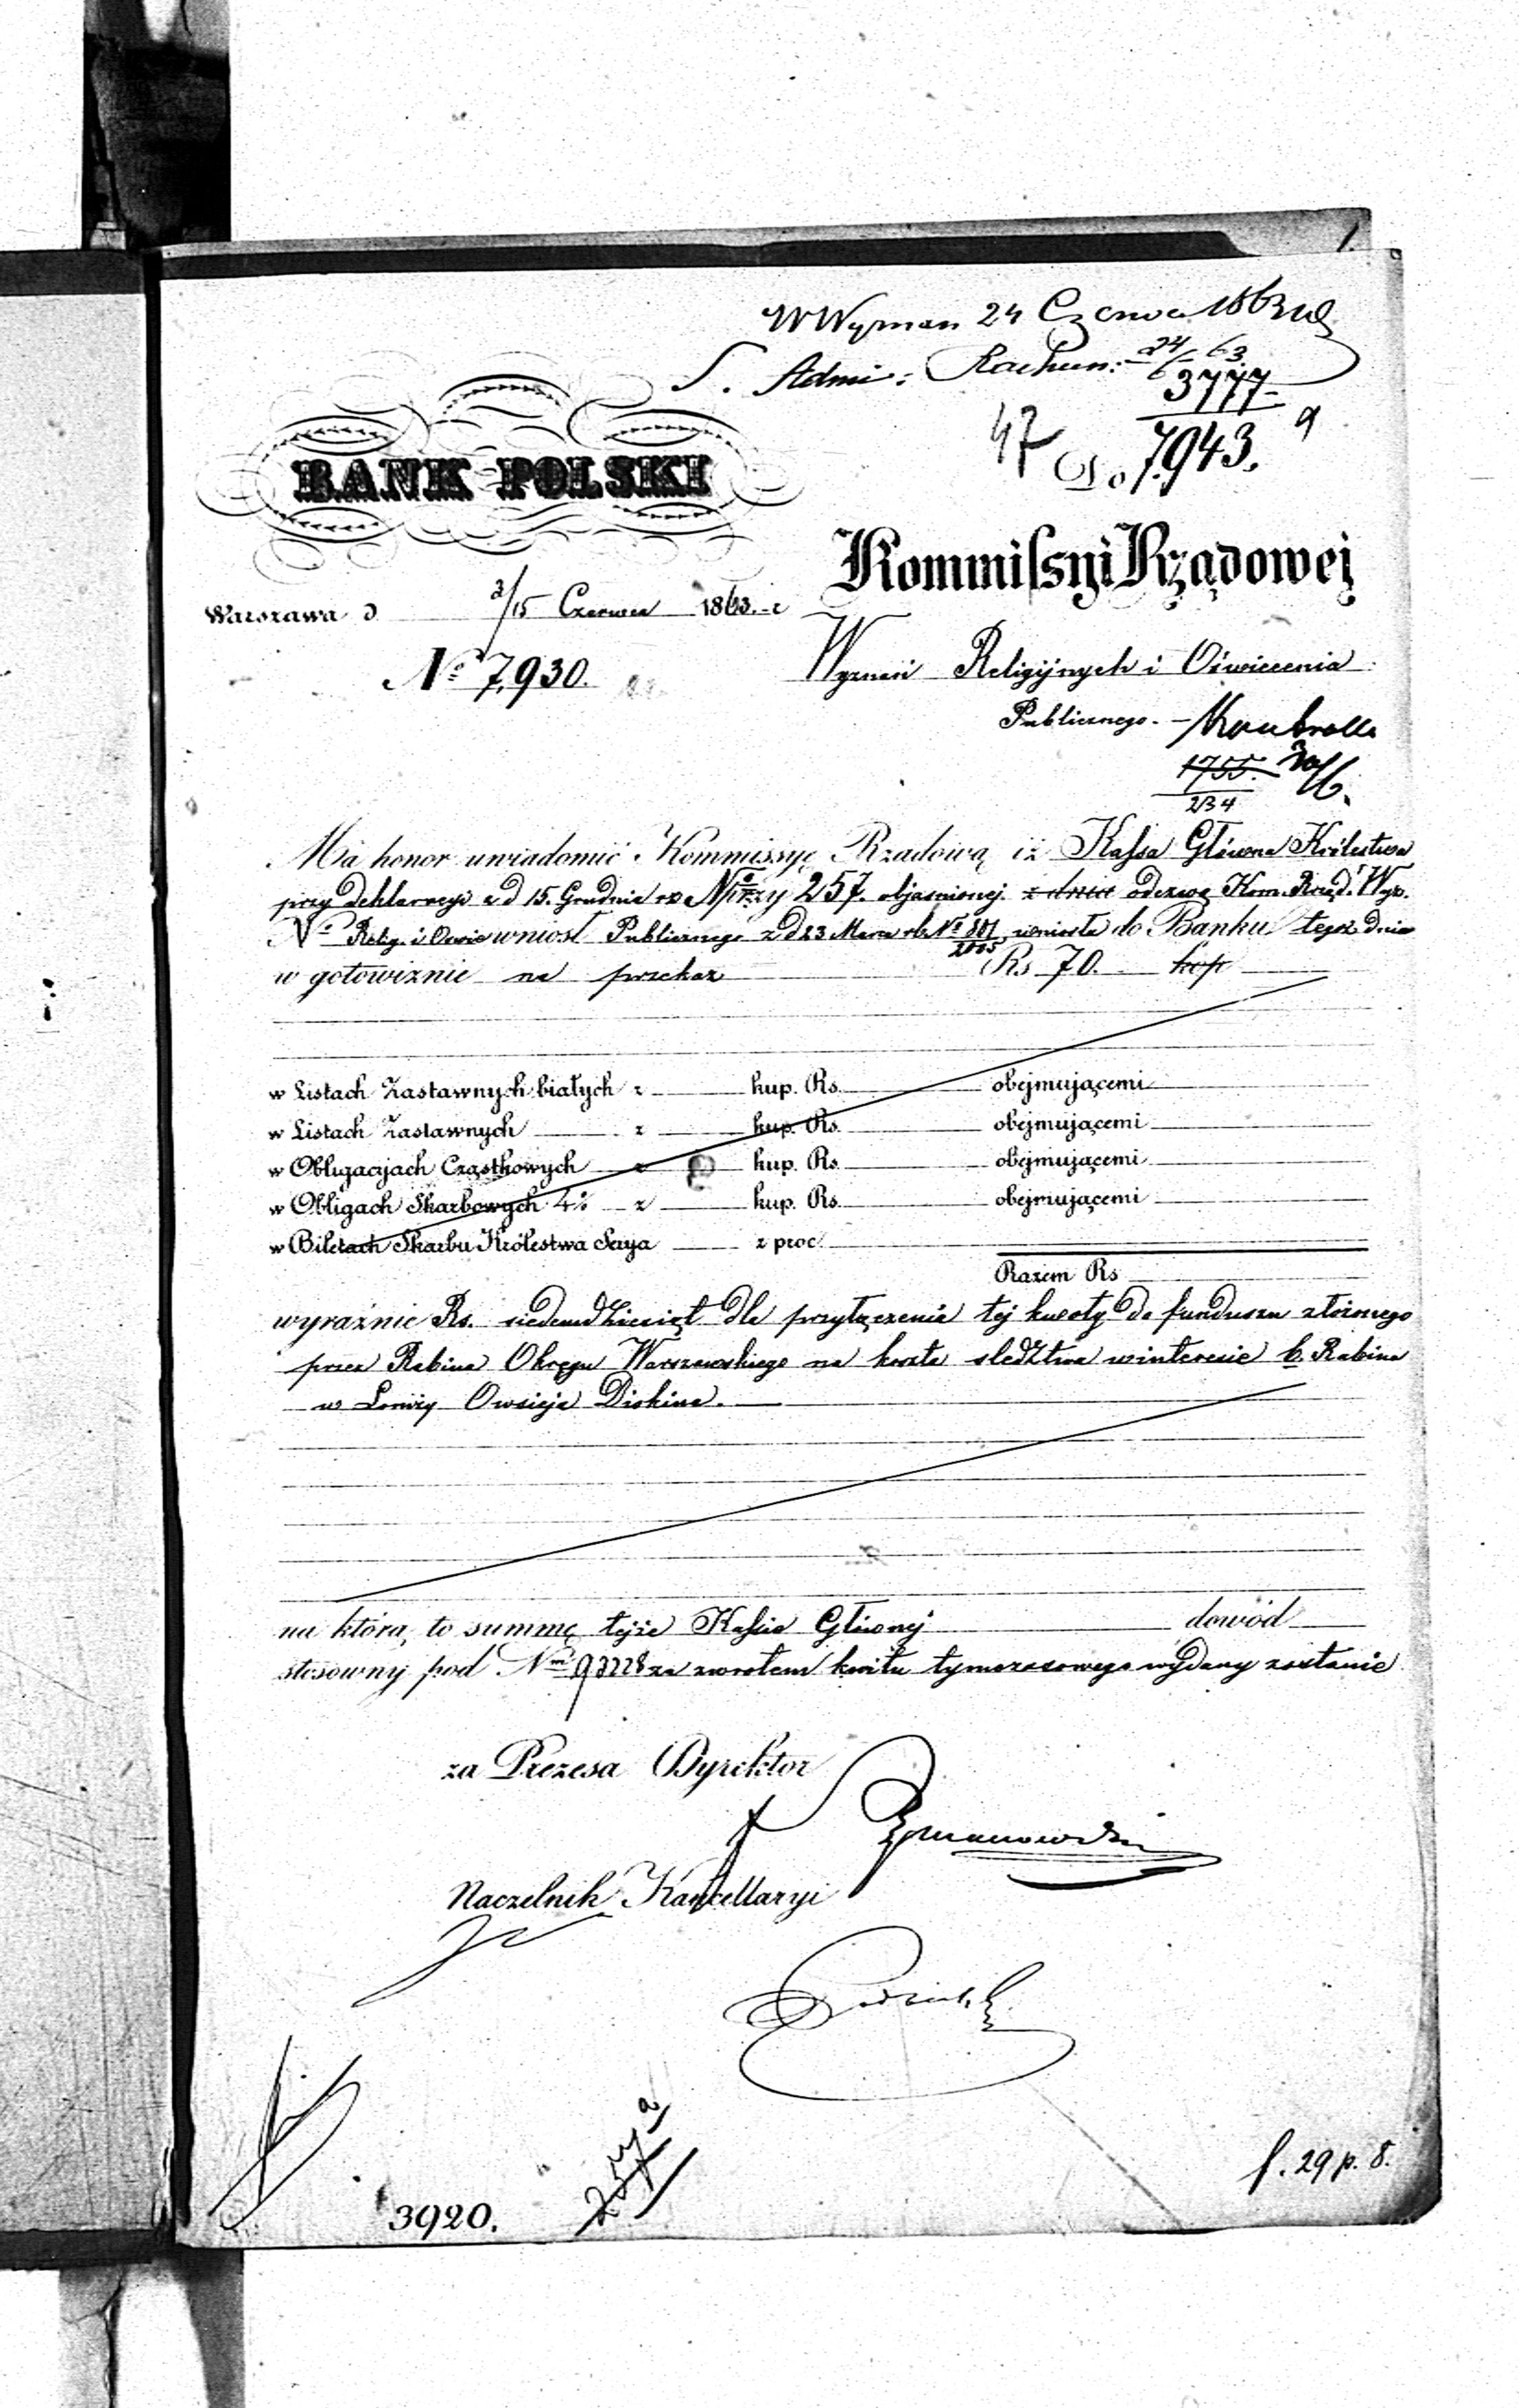 1.
W Wyznan 24 Czerwca 1863
S. Admi: Rachun: 24/6 63
3777
47 Do 7943. 9
BANK POLSKI
Kommissyi Rządowej
Warszawa d 3/15 Czerwca 1863 r
No 7,930.
Wyznań Religijnych i Oświecenia
Publicznego. – Kontrolla
1755. 30/6.
234
Ma honor uwiadomić Kommissyę Rządową iż Kassa Główna Królestwa
przy deklaracyi z d 15. Grudnia Nr przy 257. objaśnionej z dnia odezwą Kom. Rząd. Wyz.
No Relig. i Oświe wniosł Publicznego z d 23 Marca rb No 807/2005 wniosła do Banku tegoż dnia
w gotowiznie na przekaz Rs 70. kop
w Listach Zastawnych białych z kup. Rs. obejmującemi
w Listach Zastawnych z kup. Rs. obejmującemi
w Obligacyjach Cząstkowych z kup. Rs. obejmującemi
w Obligach Skarbowych 4% z kup. Rs. obejmującemi
w Biletach Skarbu Królestwa Serya z proc.
Razem Rs
wyraźnie Rs. siedemdziesiąt dla przyłączenia tej kwoty do funduszu złożonego
przez Rabina Okręgu Warszawskiego na koszta sledztwa w interesie b. Rabina
w Łomży Owsieja Diskina.
na którą to summę tejże Kassie Głównej dowód
stosowny pod Nm 93228 za zwrotem kwitu tymczasowego wydany zostanie
za Prezesa Dyrektor
Naczelnik Kancellaryi
3920.
f. 29 p. 8.